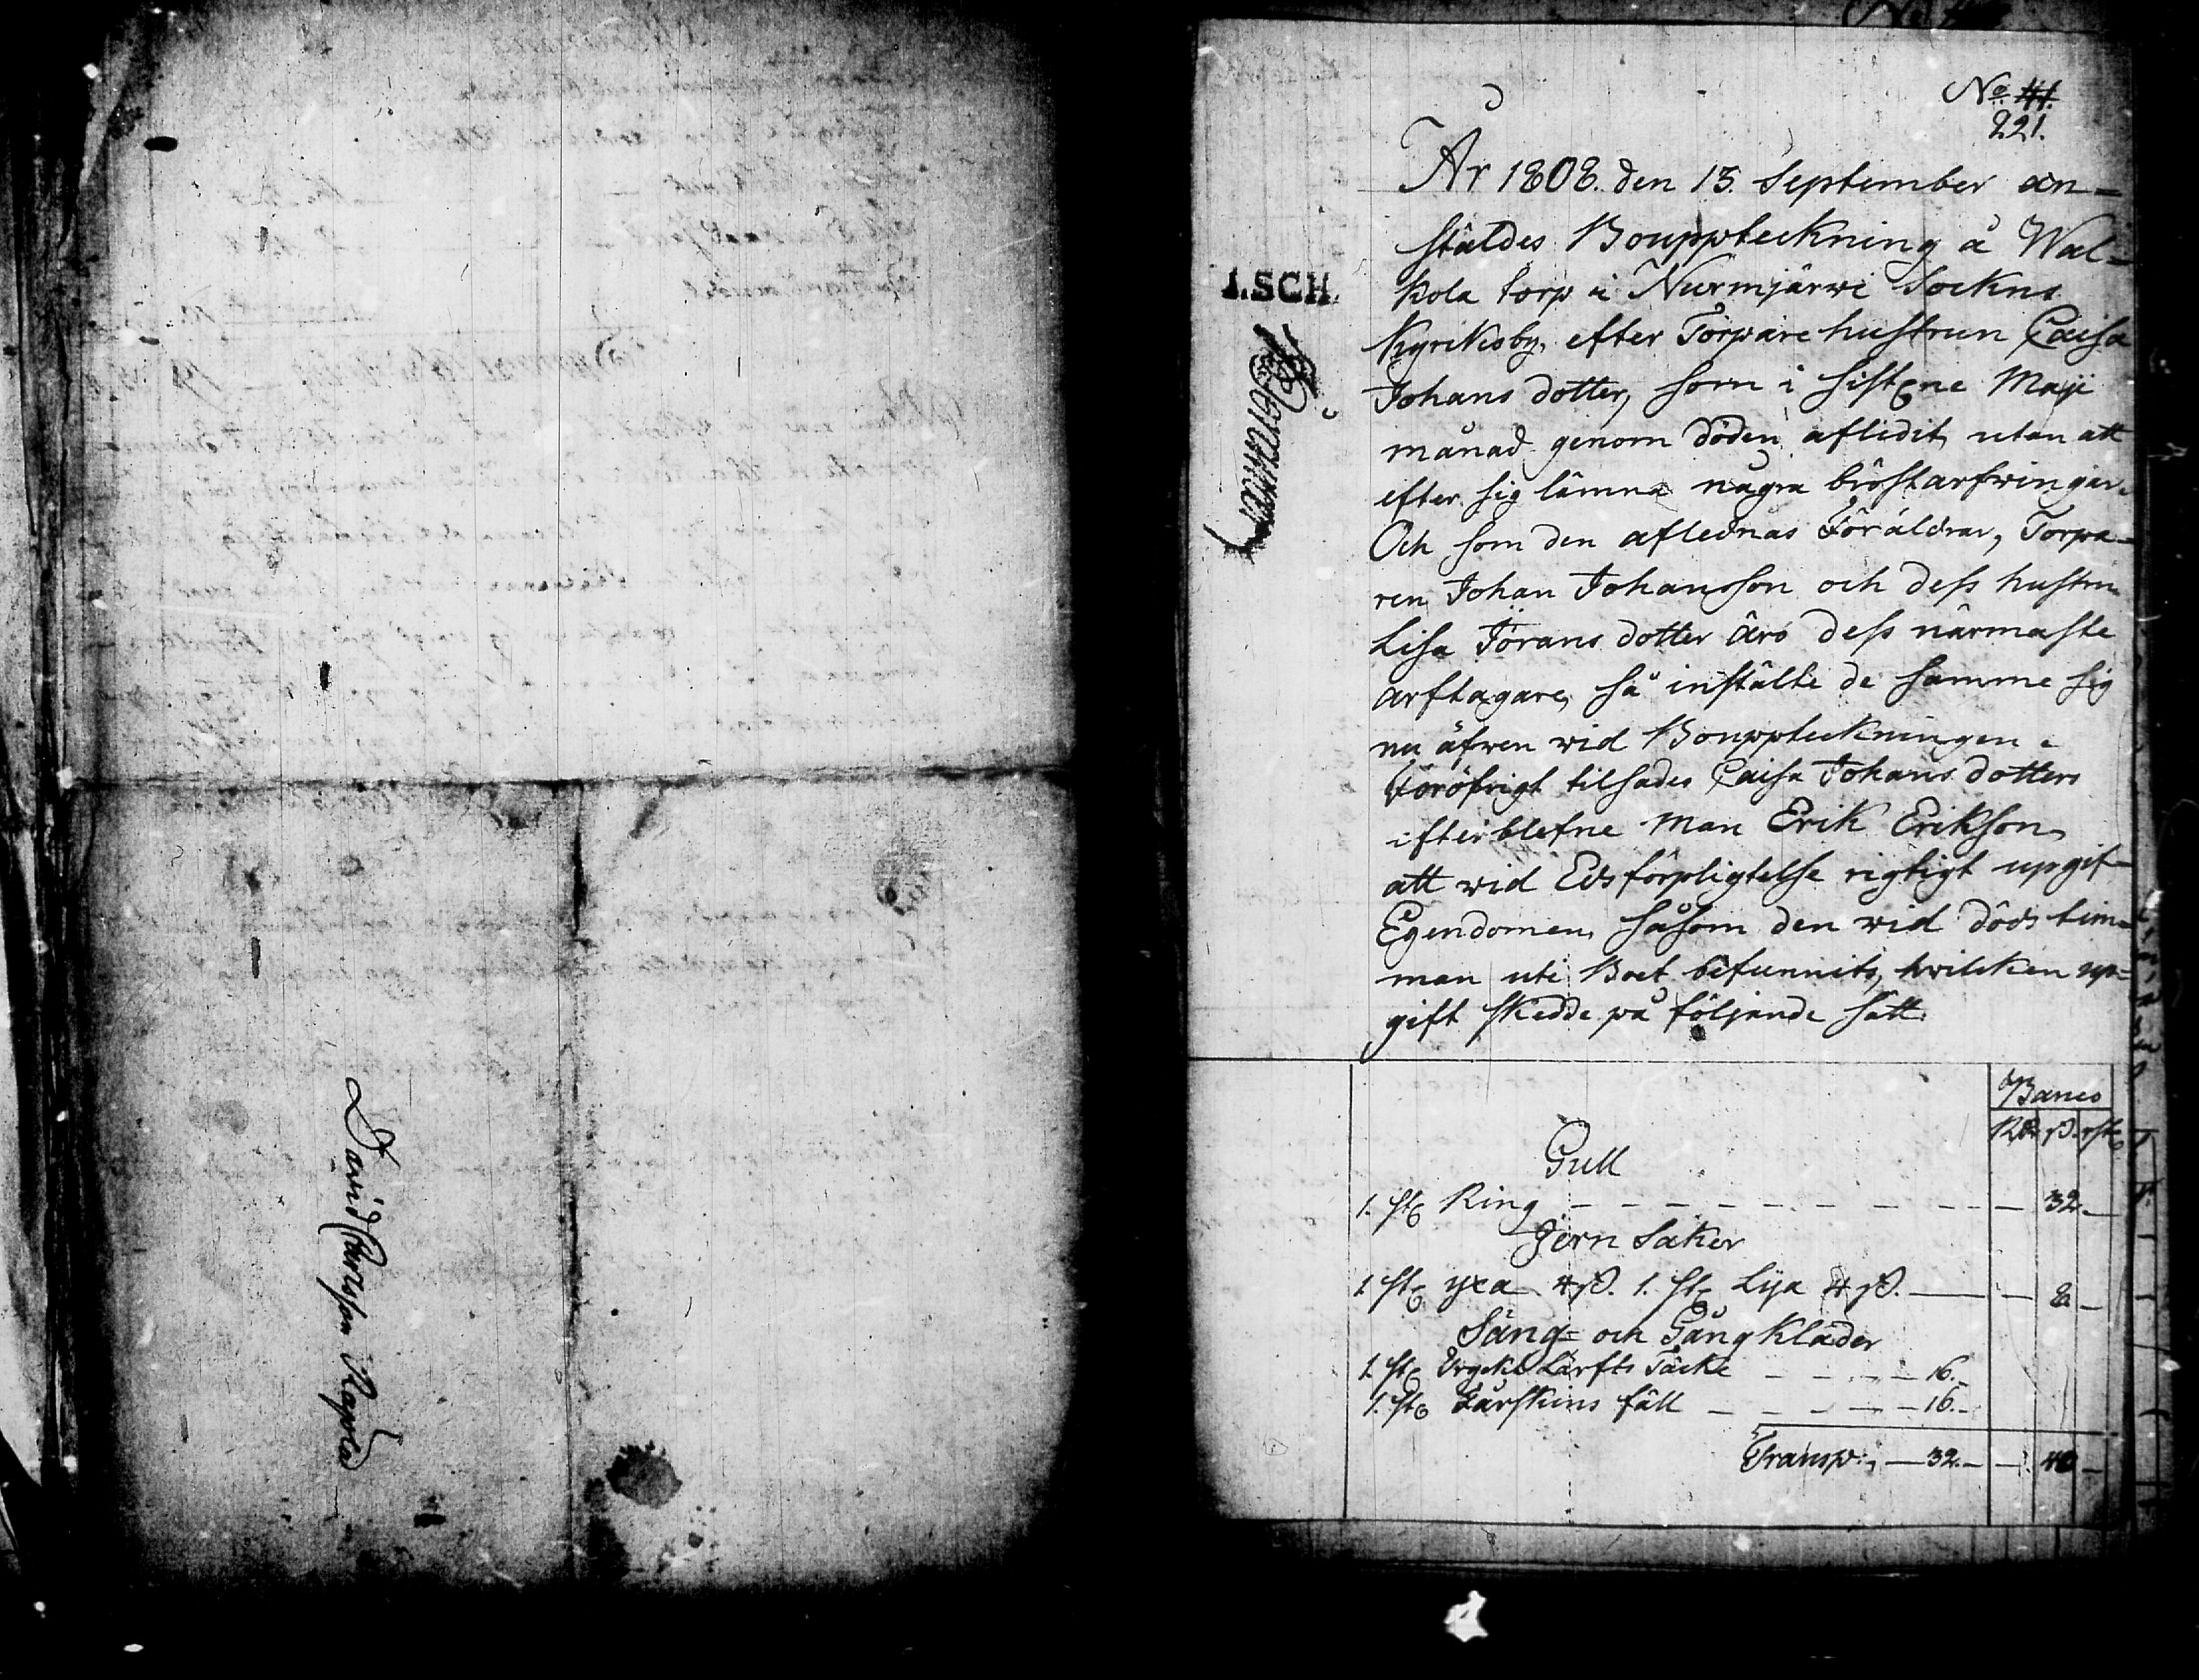 David Carlsson
No 41.
221.
År 1808. den 15. September an-
stäldes Bouppteckning å Wal-
kola torp i Nurmjärwi Sockns
Kyrkoby, efter Torpare hustrun Caisa
Johans dotter, som i sistne Maji
månad genom döden aflidit, utan att
efter sig lämna några bröstarfwingar.
Och som den aflednas Föräldrar, Torpa-
ren Johan Johansson och dess hustru
Lisa Jörans dotter äro dess närmaste
arftagare, så instälte de samme sig
nu äfwen wid Bouppteckningen.
Föröfrigt tilsades Caisa Johans dotters
efterblefne Man Erik Erikson,
att wid Edsförpligtelse rigtigt upgif-
Egendomen, såsom den wid döds tim-
man uti Boet befunnits, hwilcken up-
gift skedde på följande sätt.
1.SCH.
Banco
Rd. ß. rst.
Gull
1. st. Ring 32.
Jern Saker
1. st. yxa 4 ß. 1. st. Lya 4 ß. 8.
Säng- och Gång Kläder
1. st. Lärfts Täcke 16.
1. st. Fårskins fäll 16.
Transp: 32. 40